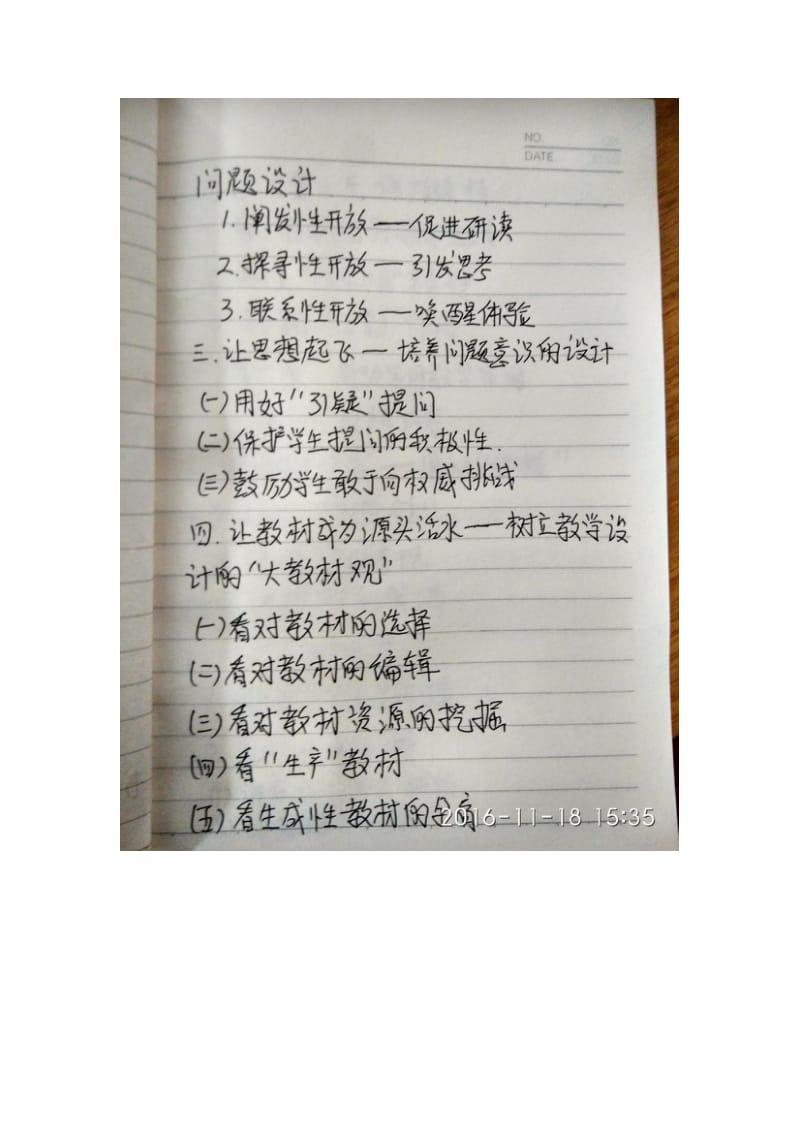 NO.
DATE
问题设计
1.阐发性开放——促进研读
2.探寻性开放——引发思考
3.联系性开放——唤醒体验
三.让思想起飞—培养问题意识的设计
(一)用好“引疑”提问
(二)保护学生提问的积极性.
(三)鼓励学生敢于向权威挑战
四.让教材成为源头活水——树立教学设
计的“大教材观”
(一)看对教材的选择
(二)看对教材的编辑
(三)看对教材资源的挖掘
(四)看“生产”教材
(五)看生成性教材的
2016-11-18 15:35